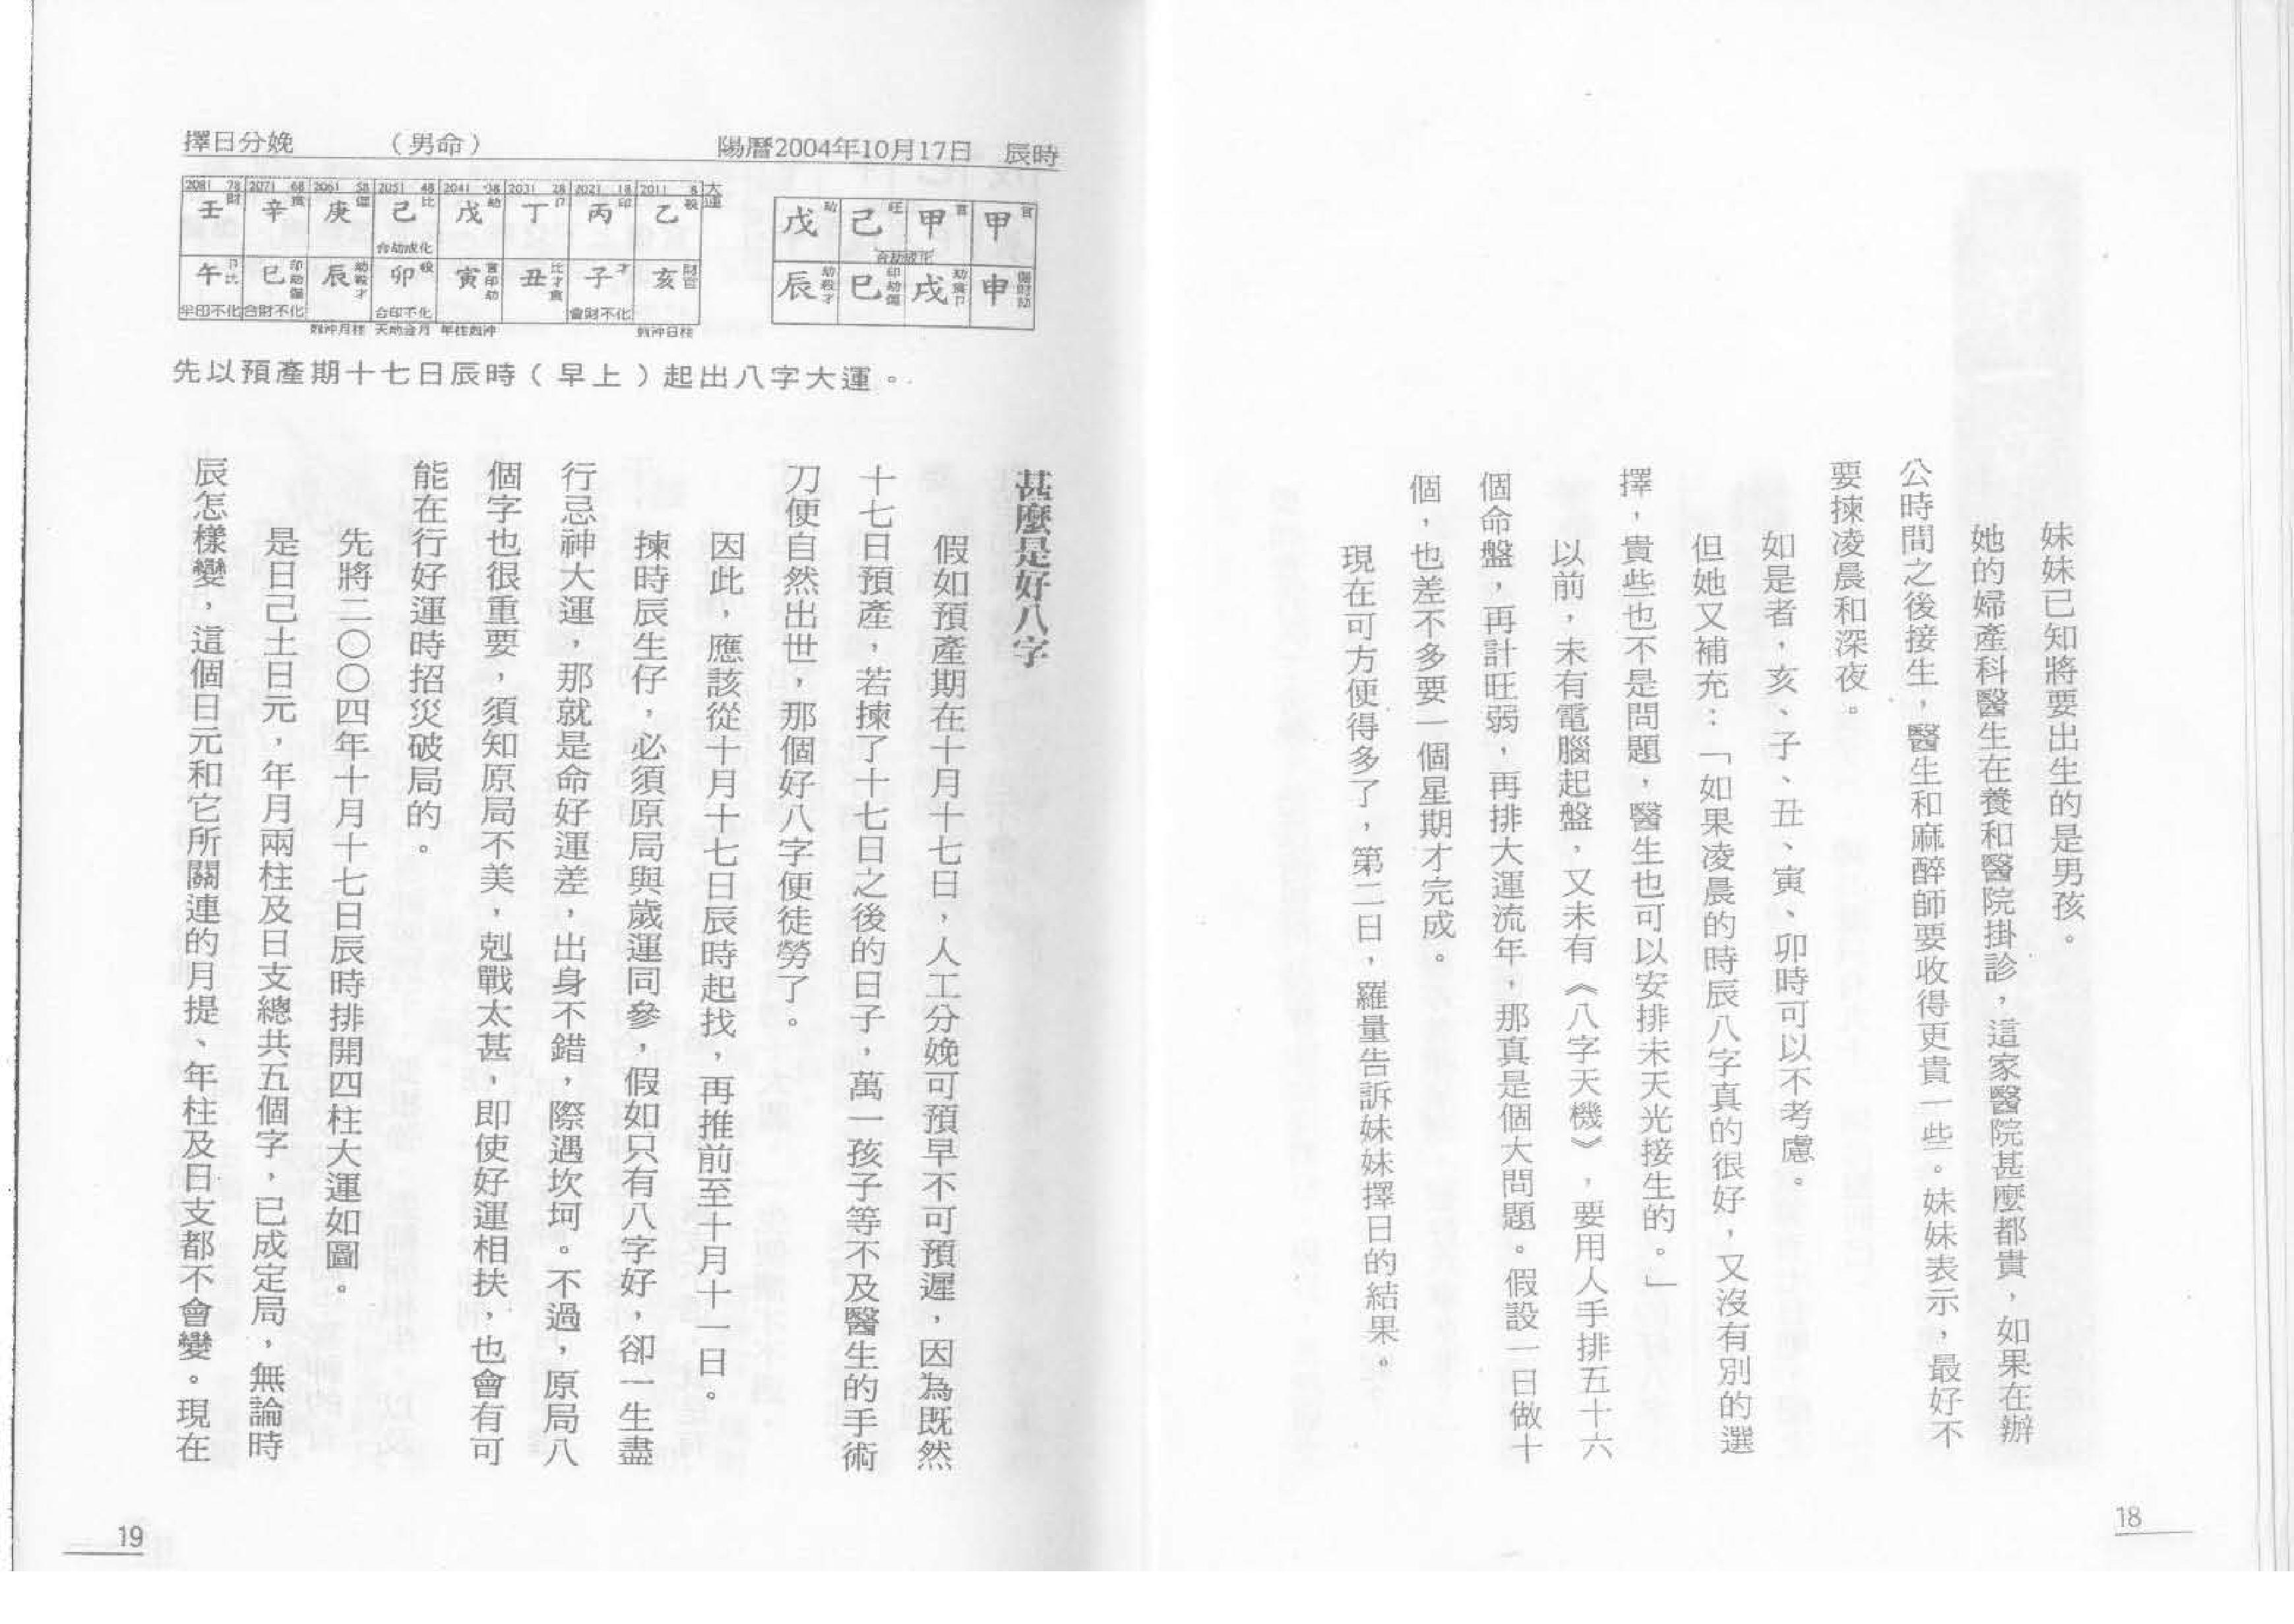 妹妹已知將要出生的是男孩。
她的婦產科醫生在養和醫院掛診，這家醫院甚麼都貴，如果在辦
公時間之後接生，醫生和麻醉師要收得更貴一些。妹妹表示，最好不
要揀凌晨和深夜。
如是者，亥、子、丑、寅、卯時可以不考慮。
但她又補充：「如果凌晨的時辰八字真的很好，又沒有別的選
擇，貴些也不是問題，醫生也可以安排未天光接生的。」
以前，未有電腦起盤，又未有《八字天機》，要用人手排五十六
個命盤，再計旺弱，再排大運流年，那真是個大問題。假設一日做十
個，也差不多要一個星期才完成。
現在可方便得多了，第二日，羅量告訴妹妹擇日的結果。
18
擇日分娩　（男命）　陽曆2004年10月17日　辰時
戊劫 己旺 甲官 甲官
合劫成化
辰劫殺才 巳印劫傷 戌劫食卩 申傷財劫
2081 78 2071 68 2061 58 2051 48 2041 38 2031 28 2021 18 2011 8 大運
壬財 辛食 庚傷 己比 戊劫 丁卩 丙印 乙殺
合劫成化
午卩比 巳印劫傷 辰劫殺才 卯殺 寅官印劫 丑比才食 子才 亥財官
半印不化 合財不化 合印不化 會財不化
尅沖月柱 天劫合月 年柱尅沖 尅沖日柱
先以預產期十七日辰時（早上）起出八字大運。
甚麼是好八字
假如預產期在十月十七日，人工分娩可預早不可預遲，因為既然
十七日預產，若揀了十七日之後的日子，萬一孩子等不及醫生的手術
刀便自然出世，那個好八字便徒勞了。
因此，應該從十月十七日辰時起找，再推前至十月十一日。
揀時辰生仔，必須原局與歲運同參，假如只有八字好，卻一生盡
行忌神大運，那就是命好運差，出身不錯，際遇坎坷。不過，原局八
個字也很重要，須知原局不美，剋戰太甚，即使好運相扶，也會有可
能在行好運時招災破局的。
先將二〇〇四年十月十七日辰時排開四柱大運如圖。
是日己土日元，年月兩柱及日支總共五個字，已成定局，無論時
辰怎樣變，這個日元和它所關連的月提、年柱及日支都不會變。現在
19